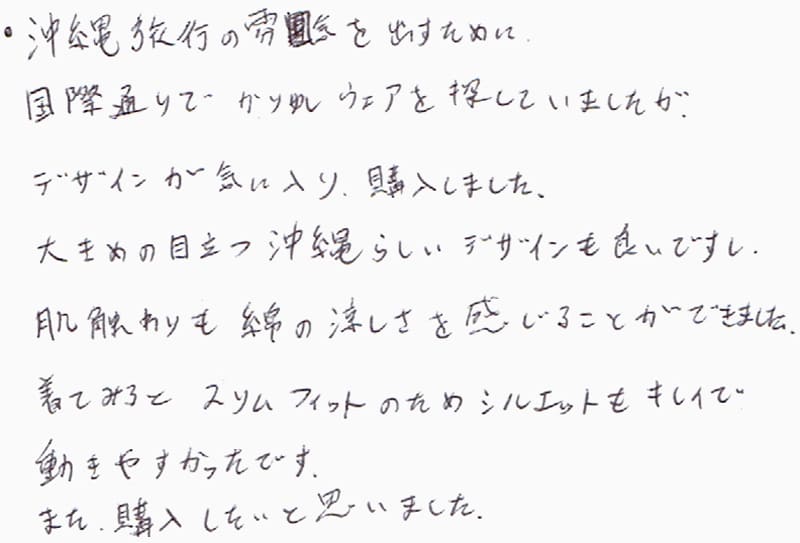 ・沖縄旅行の雰囲気を出すために、
国際通りで かりゆしウェアを探していましたが、
デザインが気に入り、購入しました、
大きめの目立つ沖縄らしいデザインも良いですし、
肌触わりも綿の涼しさを感じることができました。
着てみると スリムフィットのためシルエットもキレイで
動きやすかったです。
また、購入したいと思いました。